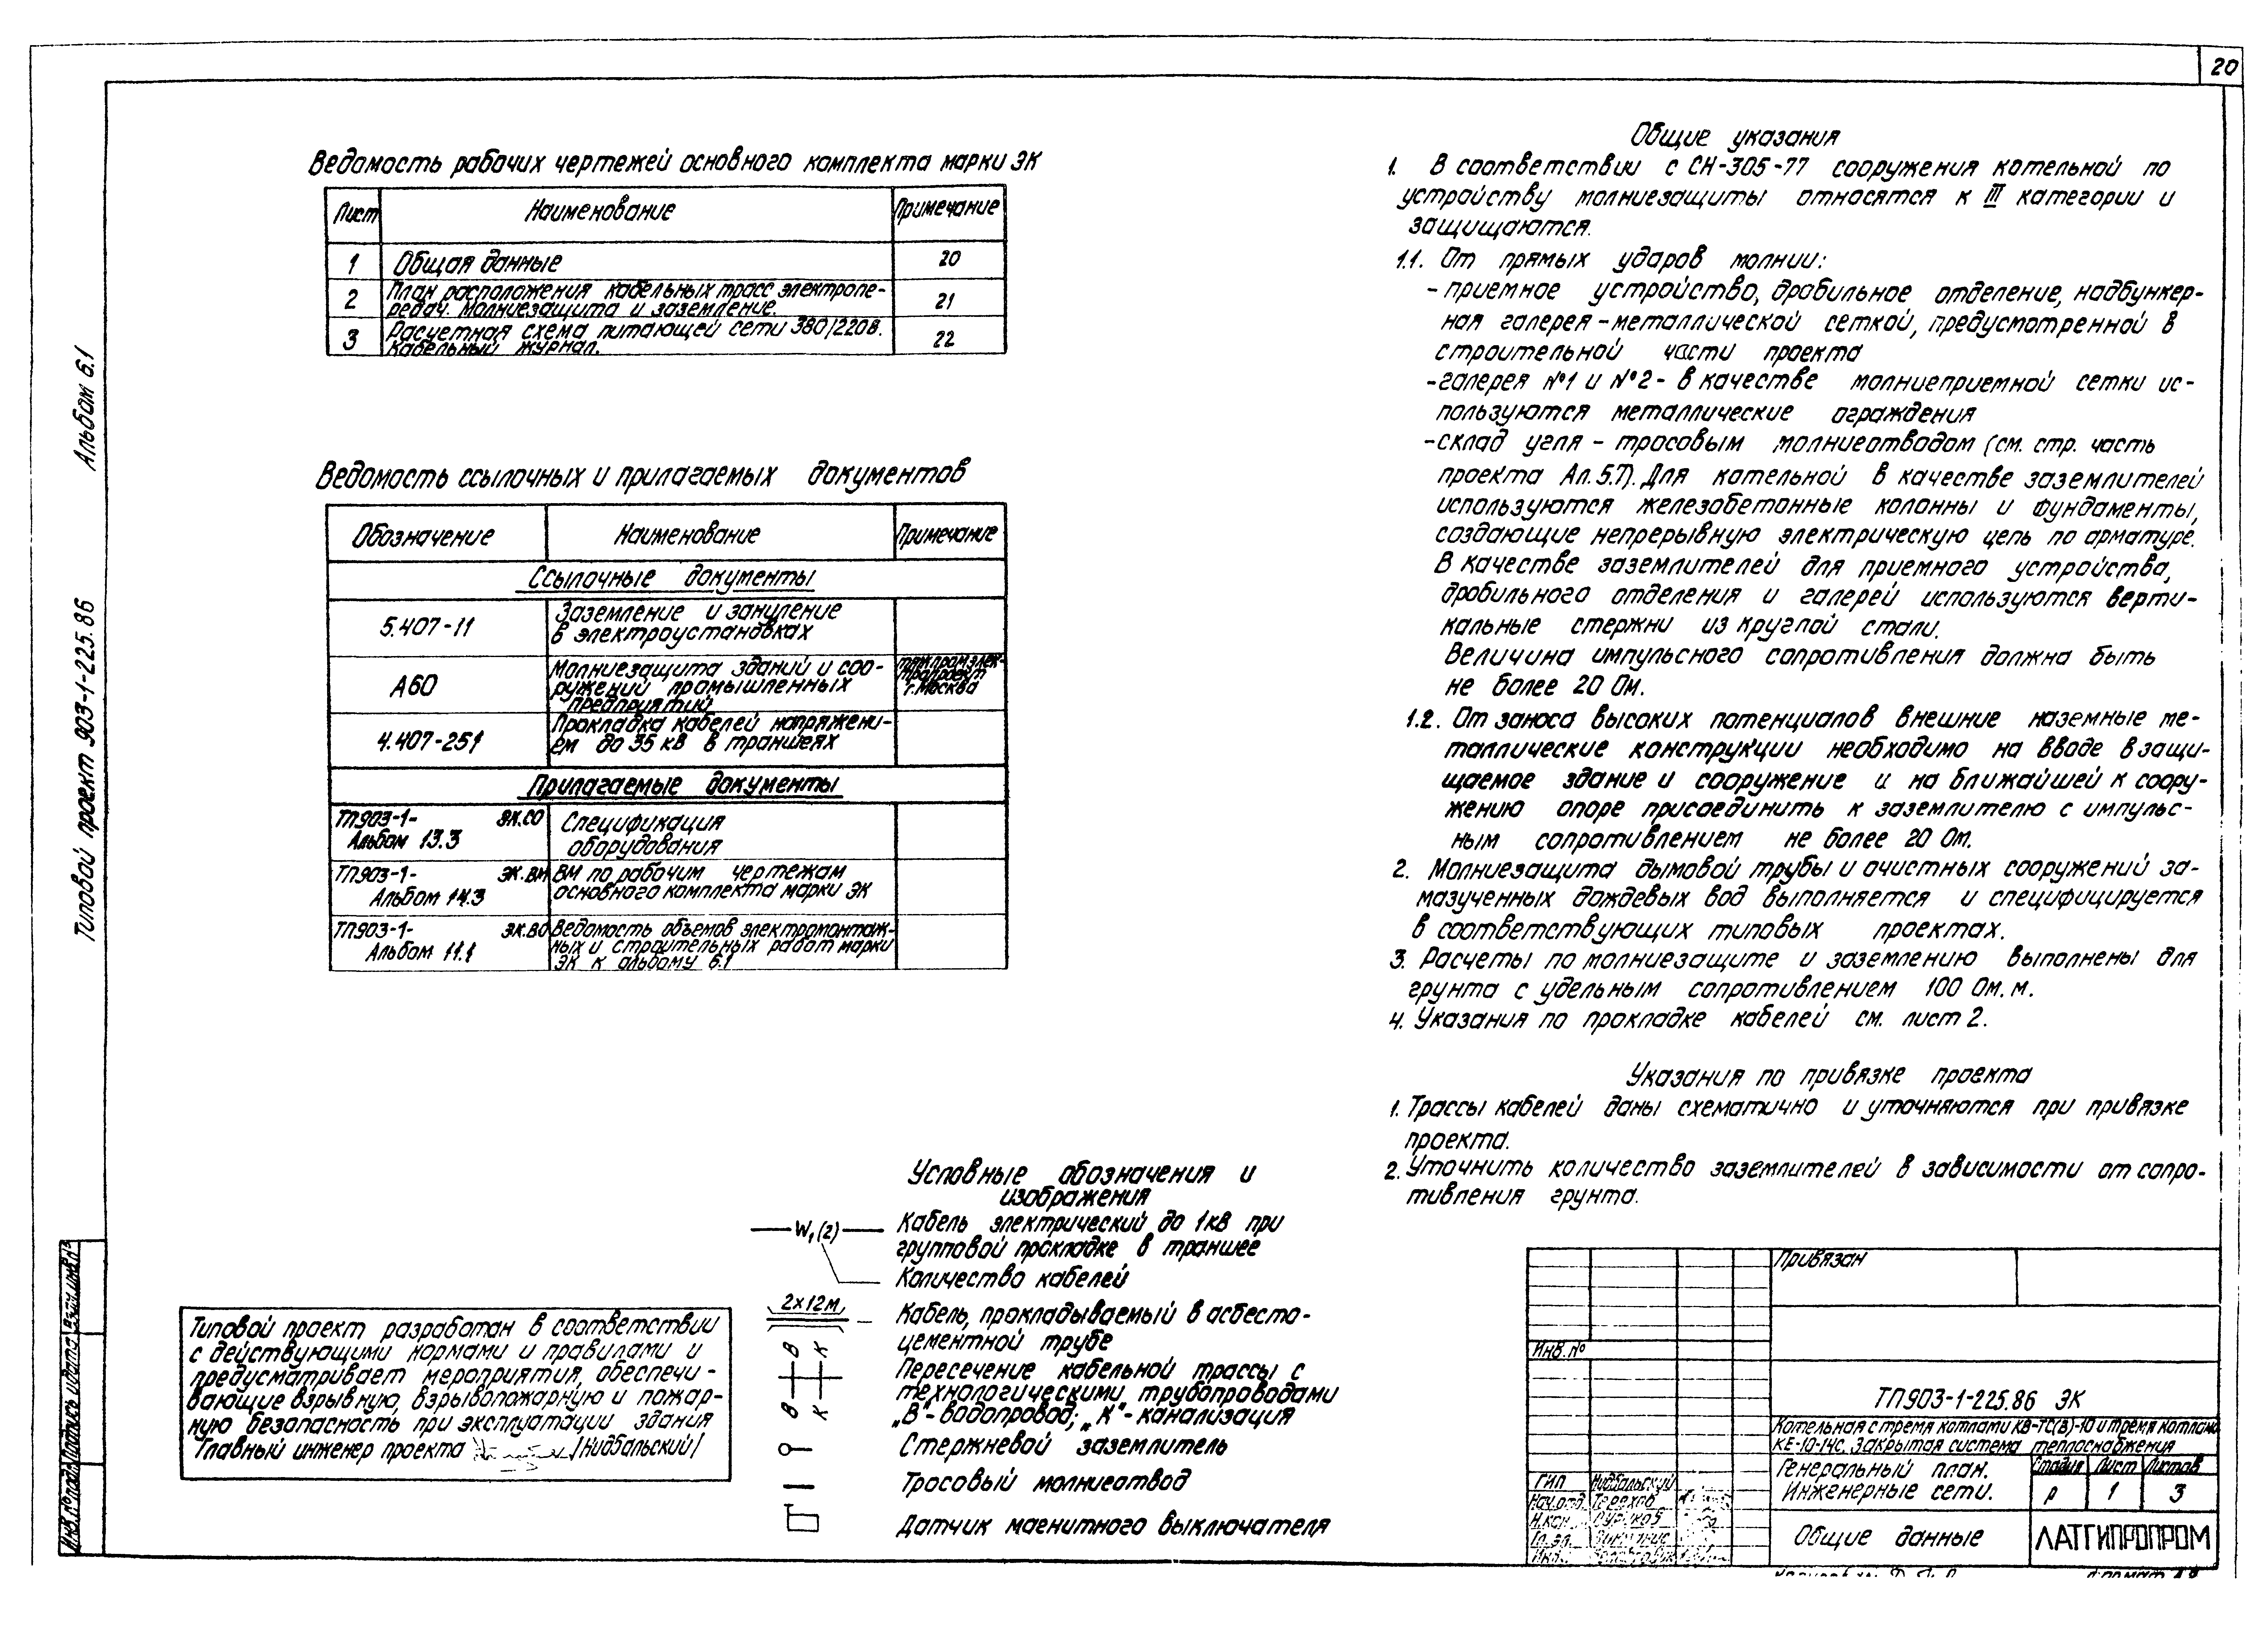 20
Альбом 6.1
Типовой проект 903-1-225.86
Ведомость рабочих чертежей основного комплекта марки ЭК
Лист Наименование Примечание
1 Общая данные 20
2 План расположения кабельных трасс электропе-
редач. Молниезащита и заземление. 21
3 Расчетная схема питающей сети 380/220В.
Кабельный журнал. 22
Ведомость ссылочных и прилагаемых документов
Обозначение Наименование Примечание
Ссылочные документы
5.407-11 Заземление и зануление
в электроустановках
А60 Молниезащита зданий и соо-
ружений промышленных
предприятий
тяжпромэлек-
тропроект
г. Москва
4.407-251 Прокладка кабелей напряжени-
ем до 35 кв в траншеях
Прилагаемые документы
ТП903-1- ЭК.СО Спецификация
Альбом 13.3 оборудования
ТП903-1- ЭК.ВМ ВМ по рабочим чертежам
Альбом 14.3 основного комплекта марки ЭК
ТП903-1- ЭК.ВО Ведомость объемов электромонтаж-
Альбом 11.1 ных и строительных работ марки
ЭК к альбому 6.1
Условные обозначения и
изображения
W1(2) Кабель электрический до 1кв при
групповой прокладке в траншее
Количество кабелей
2х12м Кабель, прокладываемый в асбесто-
цементной трубе
В К
Пересечение кабельной трассы с
технологическими трубопроводами
„В"- водопровод; „К"- канализация
В К
Стержневой заземлитель
Тросовый молниеотвод
Датчик магнитного выключателя
Типовой проект разработан в соответствии
с действующими нормами и правилами и
предусматривает мероприятия, обеспечи-
вающие взрывную, взрывопожарную и пожар-
ную безопасность при эксплуатации здания
Главный инженер проекта /Нидбальский/
Общие указания
1. В соответствии с СН-305-77 сооружения котельной по
устройству молниезащиты относятся к III категории и
защищаются.
1.1. От прямых ударов молнии:
- приемное устройство, дробильное отделение, надбункер-
ная галерея - металлической сеткой, предусмотренной в
строительной части проекта
- галерея №1 и №2 - в качестве молниеприемной сетки ис-
пользуются металлические ограждения
- склад угля - тросовым молниеотводом (см. стр. часть
проекта Ал. 5.7). Для котельной в качестве заземлителей
используются железобетонные колонны и фундаменты,
создающие непрерывную электрическую цепь по арматуре.
В качестве заземлителей для приемного устройства,
дробильного отделения и галерей используются верти-
кальные стержни из круглой стали.
Величина импульсного сопротивления должна быть
не более 20 Ом.
1.2. От заноса высоких потенциалов внешние наземные ме-
таллические конструкции необходимо на вводе в защи-
щаемое здание и сооружение и на ближайшей к соору-
жению опоре присоединить к заземлителю с импульс-
ным сопротивлением не более 20 Ом.
2. Молниезащита дымовой трубы и очистных сооружений за-
мазученных дождевых вод выполняется и специфицируется
в соответствующих типовых проектах.
3. Расчеты по молниезащите и заземлению выполнены для
грунта с удельным сопротивлением 100 Ом. м.
4. Указания по прокладке кабелей см. лист 2.
Указания по привязке проекта
1. Трассы кабелей даны схематично и уточняются при привязке
проекта.
2. Уточнить количество заземлителей в зависимости от сопро-
тивления грунта.
Привязан
Инв. №
ТП903-1-225.86 ЭК
Котельная с тремя котлами КВ-ТС(В)-10 и тремя котлами
КЕ-10-14С. Закрытая система теплоснабжения
Генеральный план.
Инженерные сети.
Стадия Лист Листов
Р 1 3
Общие данные
ЛАТГИПРОПРОМ
ГИП Нидбальский
Нач.отд. Терехов
Н.кон.
Инв.№ подл. Подпись и дата Взам.инв.№